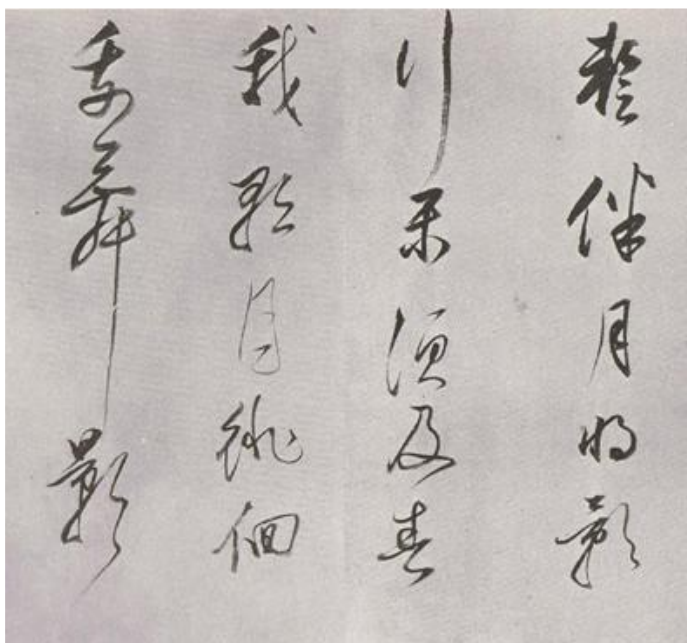 暫伴月將影
行樂須及春
我歌月徘徊
我舞影